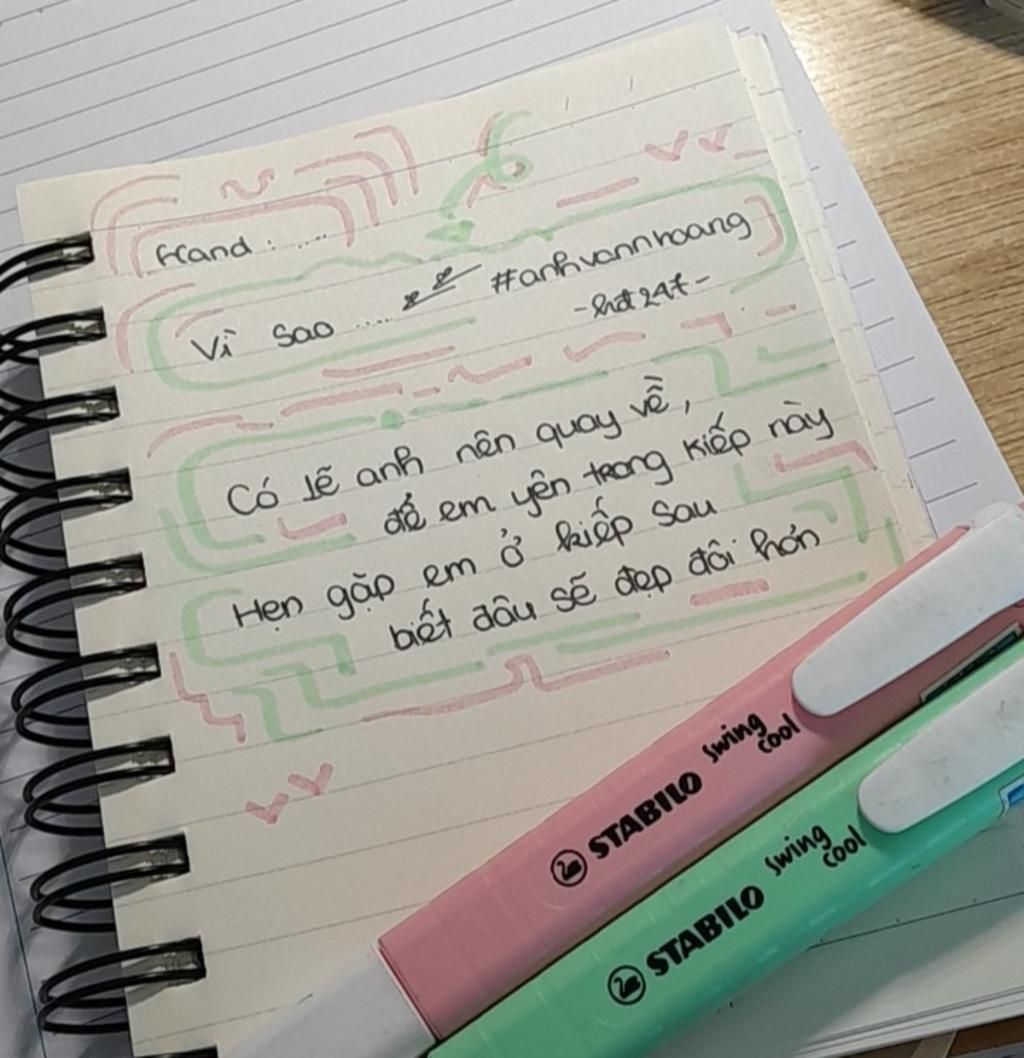 Hand : ....
Vì sao ..... #anhvannhoang
- hđt24t -
Có lẽ anh nên quay về,
để em yên trong kiếp này
Hẹn gặp em ở kiếp sau
biết đâu sẽ đẹp đôi hơn
STABILO swing cool
STABILO swing cool